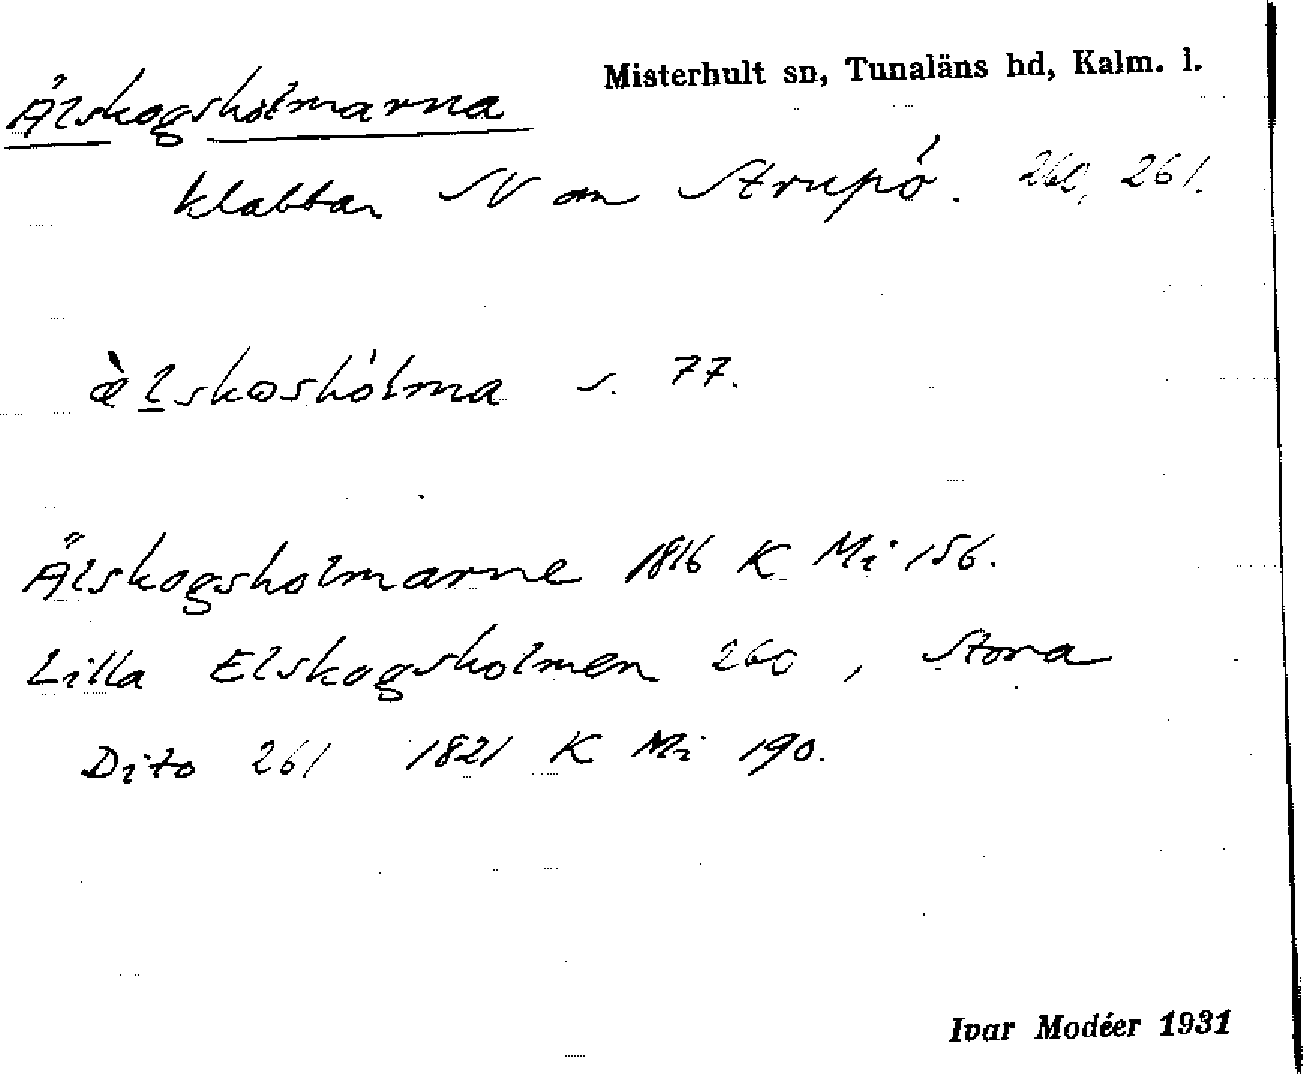 Misterhult sn, Tunaläns hd, Kalm. l.
Älskogsholmarna
klabbar N om Strupö. 260, 261.
æ̀lskoshólma s. 77.
Älskogsholmarne 1816 K Mi 156.
Lilla Elskogsholmen 260, Stora
Dito 261 1821 K Mi 190.
Ivar Modéer 1931